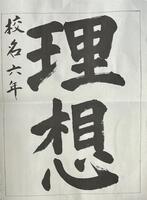 理想
校名六年